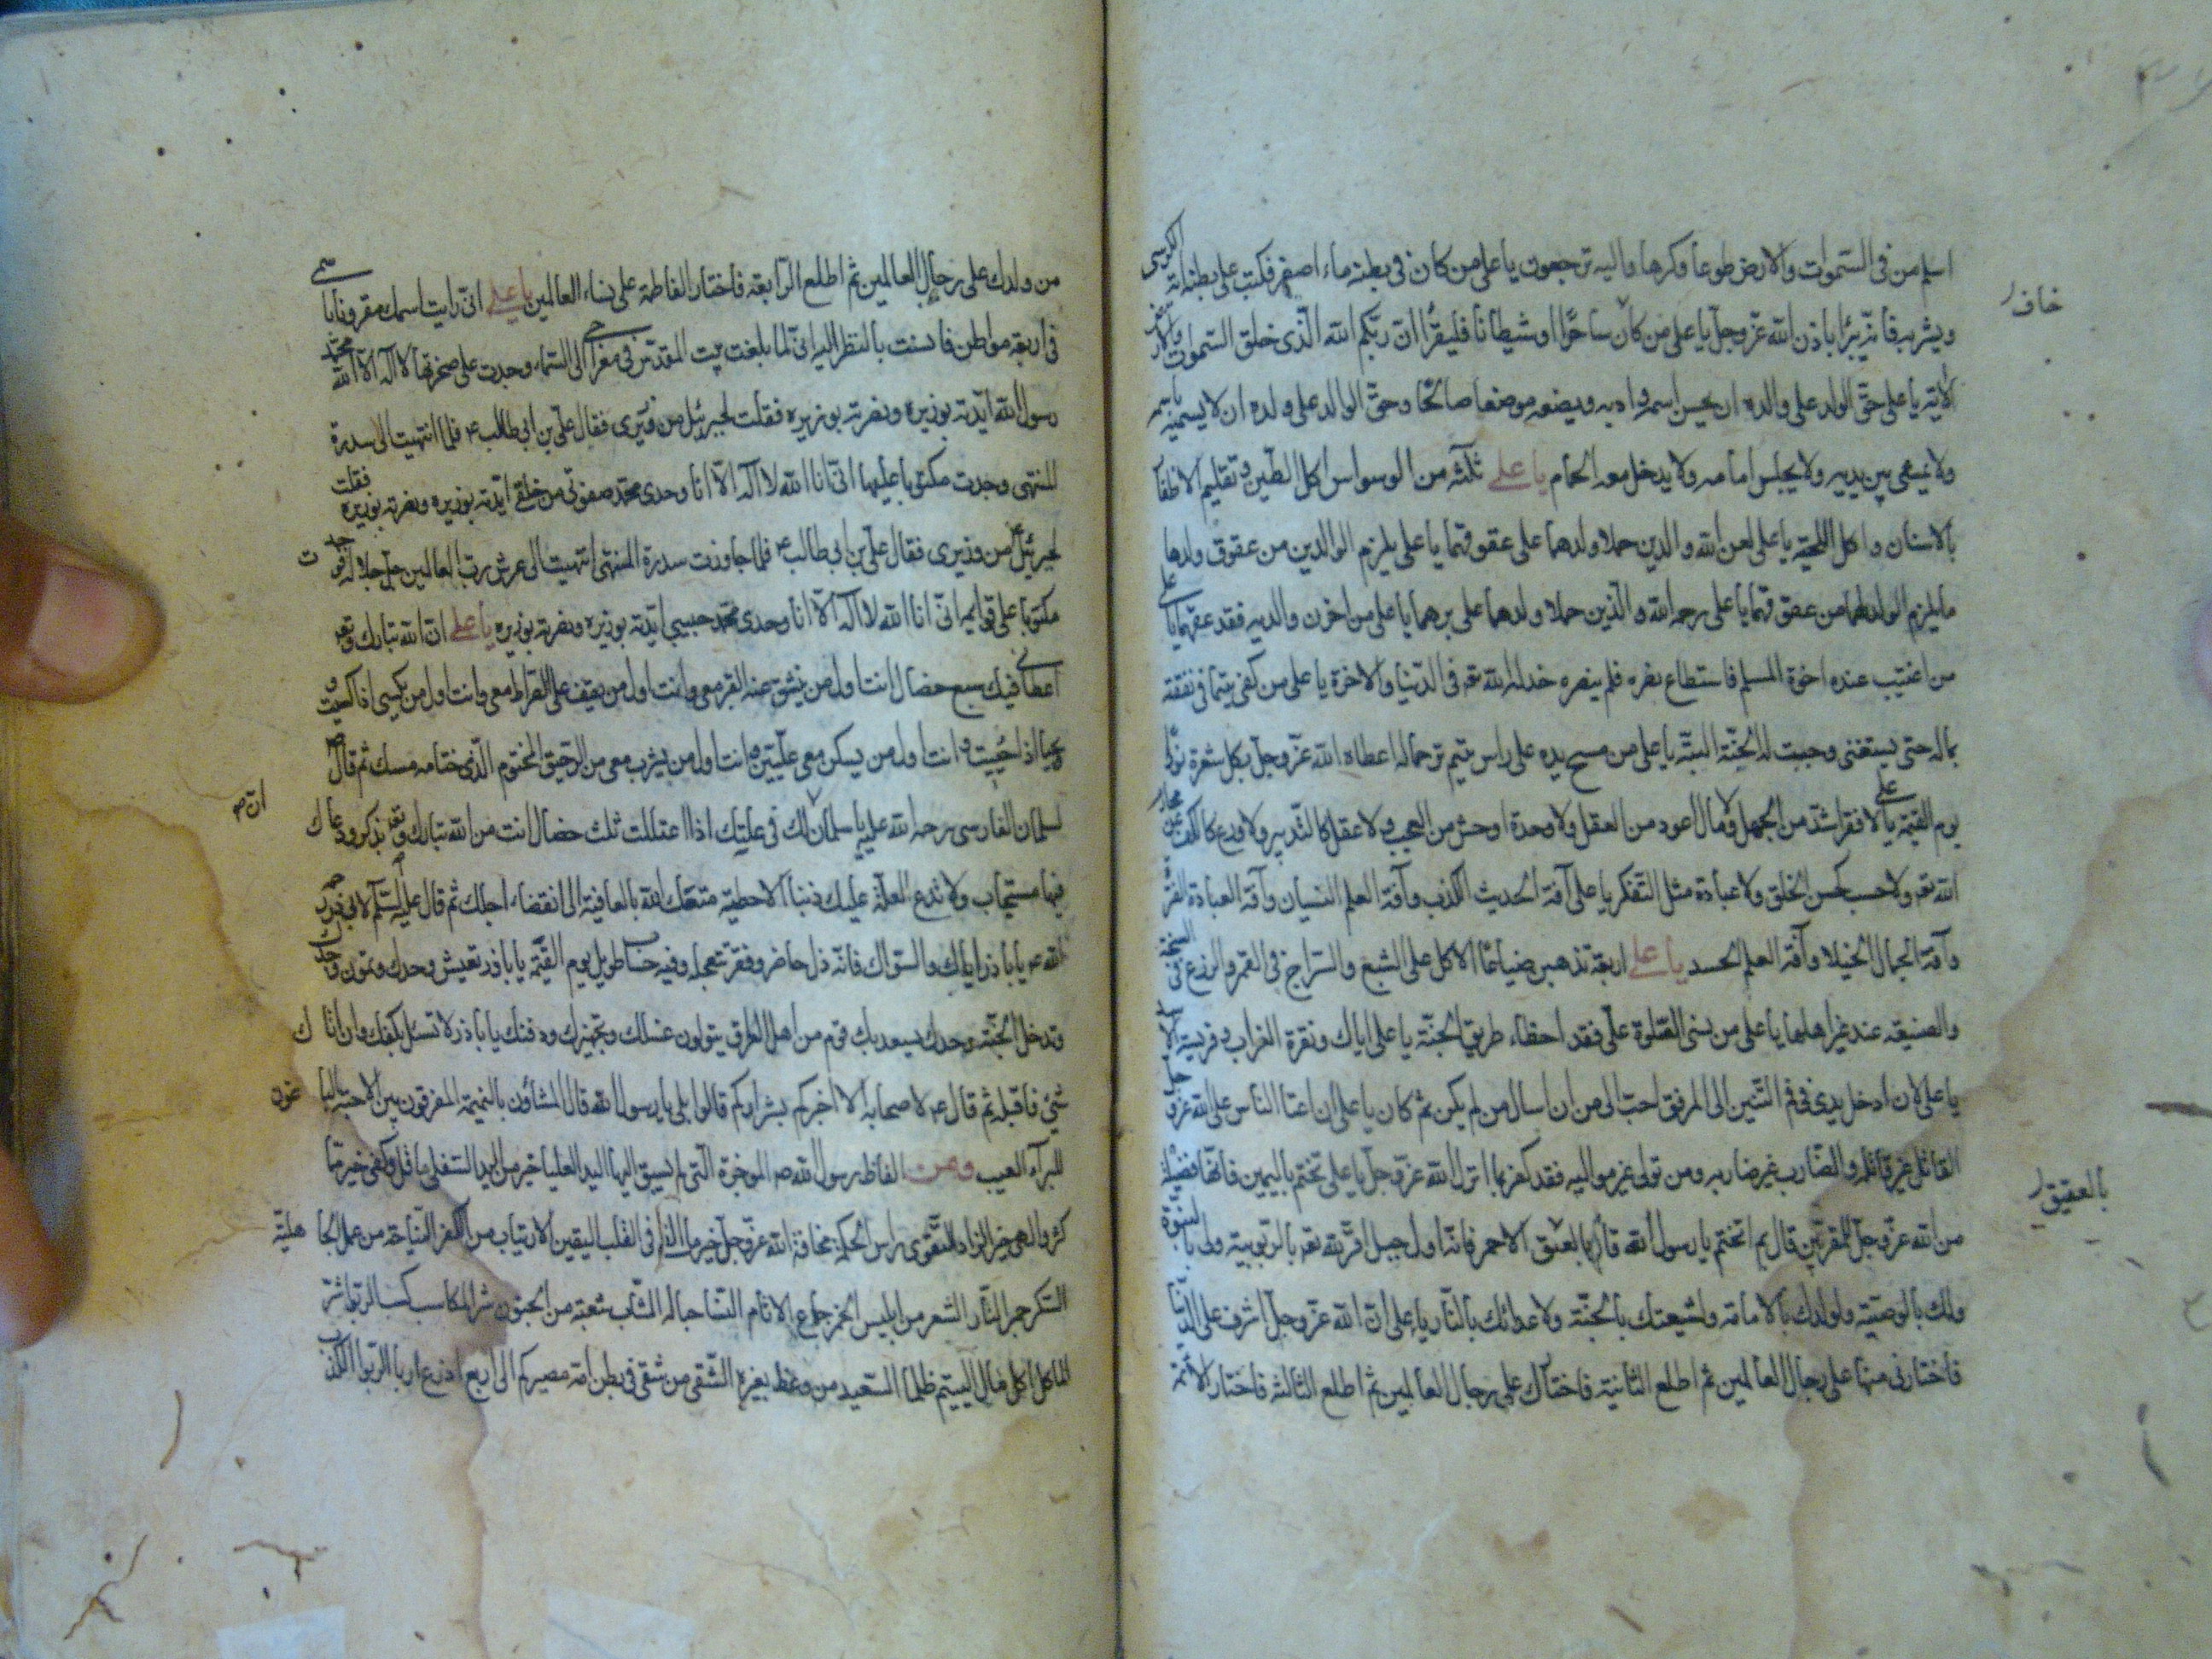 اسلم من فى السموات والارض طوعا وكرها واليه ترجعون يا على من كان فى بطنه ماء اصفر فكتب على بطنه اية الكرسى
ويشربه فانه يبرأ باذن الله عز وجل يا على من كان ساحرا او شيطانا فليقرأ ان ربكم الله الذى خلق السموات والارض
خاف
الاية يا على حق الولد على والده ان يحسن اسمه وادبه ويضعه موضعا صالحا وحق الوالد على ولده ان لا يسميه باسمه
ولا يمشى بين يديه ولا يجلس امامه ولا يدخل معه الحمام يا على ثلثة من الوسواس اكل الطين وتقليم الاظفا
بالاسنان واكل اللحية يا على لعن الله والدين حملا ولدهما على عقوقهما يا على يلزم الوالدين من عقوق ولدهما
ما يلزم الولد لهما من عقوقهما يا على رحم الله والدين حملا ولدهما على برهما يا على من احزن والديه فقد عقهما يا على
من اغتيب عنده اخوه المسلم فاستطاع نصره فلم ينصره خذله الله تع فى الدنيا والاخرة يا على من كفى يتيما فى نفقته
بماله حتى يستغنى وجبت له الجنة البتة يا على من مسح يده على راس يتيم ترحما له اعطاه الله عز وجل بكل شعرة نورا
يوم القيمة يا على لا فقر اشد من الجهل ولا مال اعود من العقل ولا وحدة اوحش من العجب ولا عقل كالتدبير ولا ورع كالكف عن محارم
الله تع ولا حسب كحسن الخلق ولا عبادة مثل التفكر يا على آفة الحديث الكذب وآفة العلم النسيان وآفة العبادة الفترة
وآفة الجمال الخيلا وآفة العلم الحسد يا على اربعة تذهبن ضياعا الاكل على الشبع والسراج فى القمر والزرع فى السبخة
والصنيعة عند غير اهلها يا على من نسى الصلوة على فقد اخطاء طريق الجنة يا على اياك ونقرة الغراب وفريسة الاسد
يا على لان ادخل يدى فى فم التنين الى المرفق احب الى من ان اسال من لم يكن ثم كان يا على ان اعتا الناس على الله عز وجل
القاتل غير قاتله والضارب غير ضاربه ومن تولى غير مواليه فقد كفر بما انزل الله عز وجل يا على تختم باليمين فانها فضيلة
بالعقيق
من الله عز وجل للمقربين قال بم اتختم يا رسول الله قال بالعقيق الاحمر فانه اول جبل اقر لله تع بالربوبية ولى بالنبوة
ولك بالوصية ولولدك بالامامة ولشيعتك بالجنة ولاعدائك بالنار يا على ان الله عز وجل اشرف على الدنيا
فاختارنى منها على رجال العالمين ثم اطلع الثانية فاختارك على رجال العالمين ثم اطلع الثالثة فاختار الائمة
من ولدك على رجال العالمين ثم اطلع الرابعة فاختار الفاطمة على نساء العالمين يا على انى رايت اسمك مقرونا باسمى
فى اربعة مواطن فانست بالنظر اليه انى لما بلغت بيت المقدس فى معراجى الى السماء وجدت على صخرتها لا اله الا الله محمد
رسول الله ايدته بوزيره ونصرته بوزيره فقلت لجبرئيل من وزيرى فقال على بن ابى طالب ع فلما انتهيت الى سدرة
المنتهى وجدت مكتوبا عليها انى انا الله لا اله الا انا وحدى محمد صفوتى من خلقى ايدته بوزيره ونصرته بوزيره فقلت
لجبرئيل من وزيرى فقال على بن ابى طالب ع فلما جاوزت سدرة المنتهى انتهيت الى عرش رب العالمين جل جلاله فوجدت
مكتوبا على قوايمه انى انا الله لا اله الا انا وحدى محمد حبيبى ايدته بوزيره ونصرته بوزيره يا على ان الله تبارك وتع
اعطانى فيك سبع خصال انت اول من ينشق عنه القبر معى وانت اول من يقف على الصراط معى وانت اول من يكسى اذا كسيت و
يحيا اذا حييت وانت اول من يسكن معى عليين وانت اول من يشرب معى من الرحيق المختوم الذى ختامه مسك ثم قال ص
ان
لسلمان الفارسى رحمه الله عليه يا سلمان لك فى علتك اذا اعتللت ثلث خصال انت من الله تبارك وتع بذكر ودعاك
فيها مستجاب ولا تدع العلة عليك ذنبا الا حطته متعك الله بالعافية الى انقضاء اجلك ثم قال عليه السلم لابى ذر
الله ع يا با ذر اياك والسؤال فانه ذل حاضر وفقر تتعجله وفيه حساب طويل يوم القيمة يا با ذر تعيش وحدك وتموت وحدك
وتدخل الجنة وحدك يسعد بك قوم من اهل العراق يتولون غسلك وتجهيزك ودفنك يا با ذر لا تسئل بكفك وان اتاك
شئ فاقبله ثم قال ع لاصحابه الا اخبركم بشراركم قالوا بلى يا رسول الله قال المشاؤن بالنميمة المفرقون بين الاحبة الباغون
للبرآء العيب ومن الفاظ رسول الله ص الموجزة التى لم يسبق اليها اليد العليا خير من اليد السفلى ما قل وكفى خير مما
كثر والهى خير الزاد التقوى راس الحكمة مخافة الله عز وجل خير ما القى فى القلب اليقين الارتياب من الكفر النياحة من عمل الجاهلية
السكر جمر النار الشعر من ابليس الخمر جماع الاثام النسا حبالة الشباب شعبة من الجنون شر المكاسب كسب الربوا شر
الماكل اكل مال اليتيم ظلما السعيد من وعظ بغيره الشقى من شقى فى بطن امه مصيركم الى اربع اذرع اربا الربوا الكذب